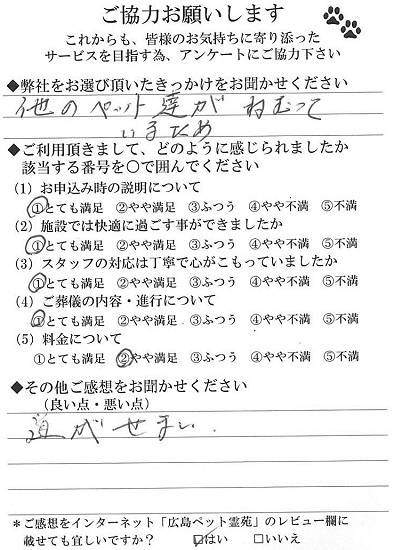 ご協力お願いします
これからも、皆様のお気持ちに寄り添った
サービスを目指す為、アンケートにご協力下さい
◆弊社をお選び頂いたきっかけをお聞かせください
他のペット達が ねむって
いるため
◆ご利用頂きまして、どのように感じられましたか
該当する番号を〇で囲んでください
(1) お申込み時の説明について
①とても満足 ②やや満足 ③ふつう ④やや不満 ⑤不満
(2) 施設では快適に過ごす事ができましたか
①とても満足 ②やや満足 ③ふつう ④やや不満 ⑤不満
(3) スタッフの対応は丁寧で心がこもっていましたか
①とても満足 ②やや満足 ③ふつう ④やや不満 ⑤不満
(4) ご葬儀の内容・進行について
①とても満足 ②やや満足 ③ふつう ④やや不満 ⑤不満
(5) 料金について
①とても満足 ②やや満足 ③ふつう ④やや不満 ⑤不満
◆その他ご感想をお聞かせください
(良い点・悪い点)
道がせまい.
*ご感想をインターネット「広島ペット霊苑」のレビュー欄に
載せても宜しいですか? □はい □いいえ